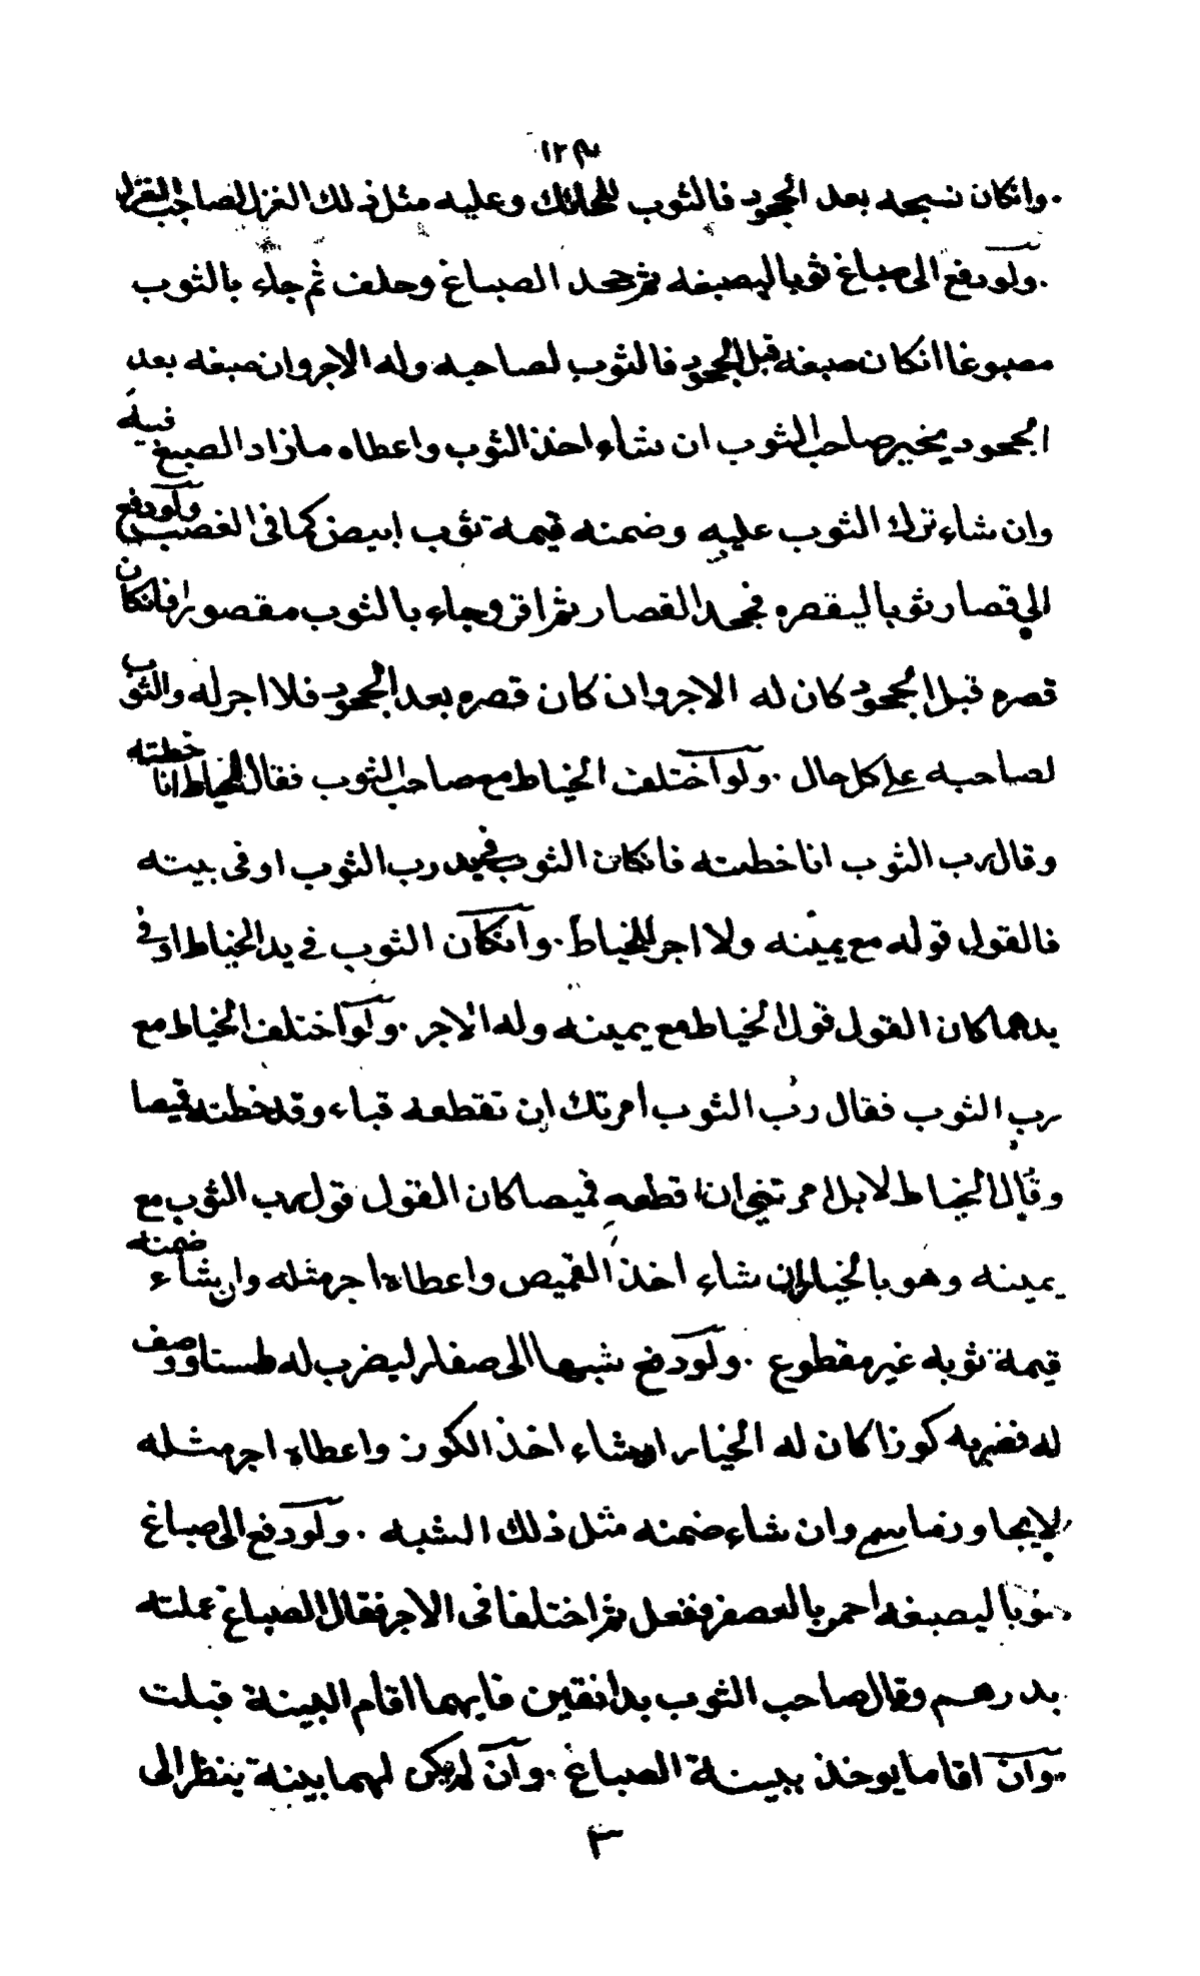 ١٢٣
وانكان نسجه بعد الجحود فالثوب للحائك وعليه مثل ذلك الغزل لصاحب الغزل
ولو دفع الى صباغ ثوبا ليصبغه ثم جحد الصباغ وحلف ثم جاء بالثوب
مصبوغا انكان صبغه قبل الجحود فالثوب لصاحبه وله الاجر وان صبغه بعد
الجحود يخير صاحب الثوب ان شاء اخذ الثوب واعطاه ما زاد الصبغ فيه
وان شاء ترك الثوب عليه وضمنه قيمة ثوب ابيض كما فى الغصب ولو دفع
الي قصار ثوبا ليقصره فجحد القصار ثم اقر وجاء بالثوب مقصورا فانكان
قصره قبل الجحود كان له الاجر وان كان قصره بعد الجحود فلا اجر له والثوب
لصاحبه على كل حال . ولو اختلف الخياط مع صاحب الثوب فقال الخياط انا خطته
وقال رب الثوب انا خطته فانكان الثوب في يد رب الثوب او فى بيته
فالقول قوله مع يمينه ولا اجر للخياط . وانكان الثوب في يد الخياط او في
يدهما كان القول قول الخياط مع يمينه وله الاجر . ولو اختلف الخياط مع
رب الثوب فقال رب الثوب امرتك ان تقطعه قباء وقد خطته قميصا
وقال الخياط لا بل امرتني ان اقطعه قميصا كان القول قول رب الثوب مع
يمينه وهو بالخيار ان شاء اخذ القميص واعطاه اجر مثله وان شاء ضمنه
قيمة ثوبه غير مقطوع . ولو دفع شبها الى صفار ليضرب له طستا ووصف
له فضربه كوزا كان له الخيار ان شاء اخذ الكوز واعطاه اجر مثله
لا يجاوز ما سمى وان شاء ضمنه مثل ذلك الشبه . ولو دفع الى صباغ
ثوبا ليصبغه احمر بالعصفر ففعل ثم اختلفا فى الاجر فقال الصباغ عملته
بدرهم وقال صاحب الثوب بدانقين فايهما اقام البينة قبلت
وان اقاما يوخذ ببينة الصباغ . وان لم يكن لهما بينة ينظر الى